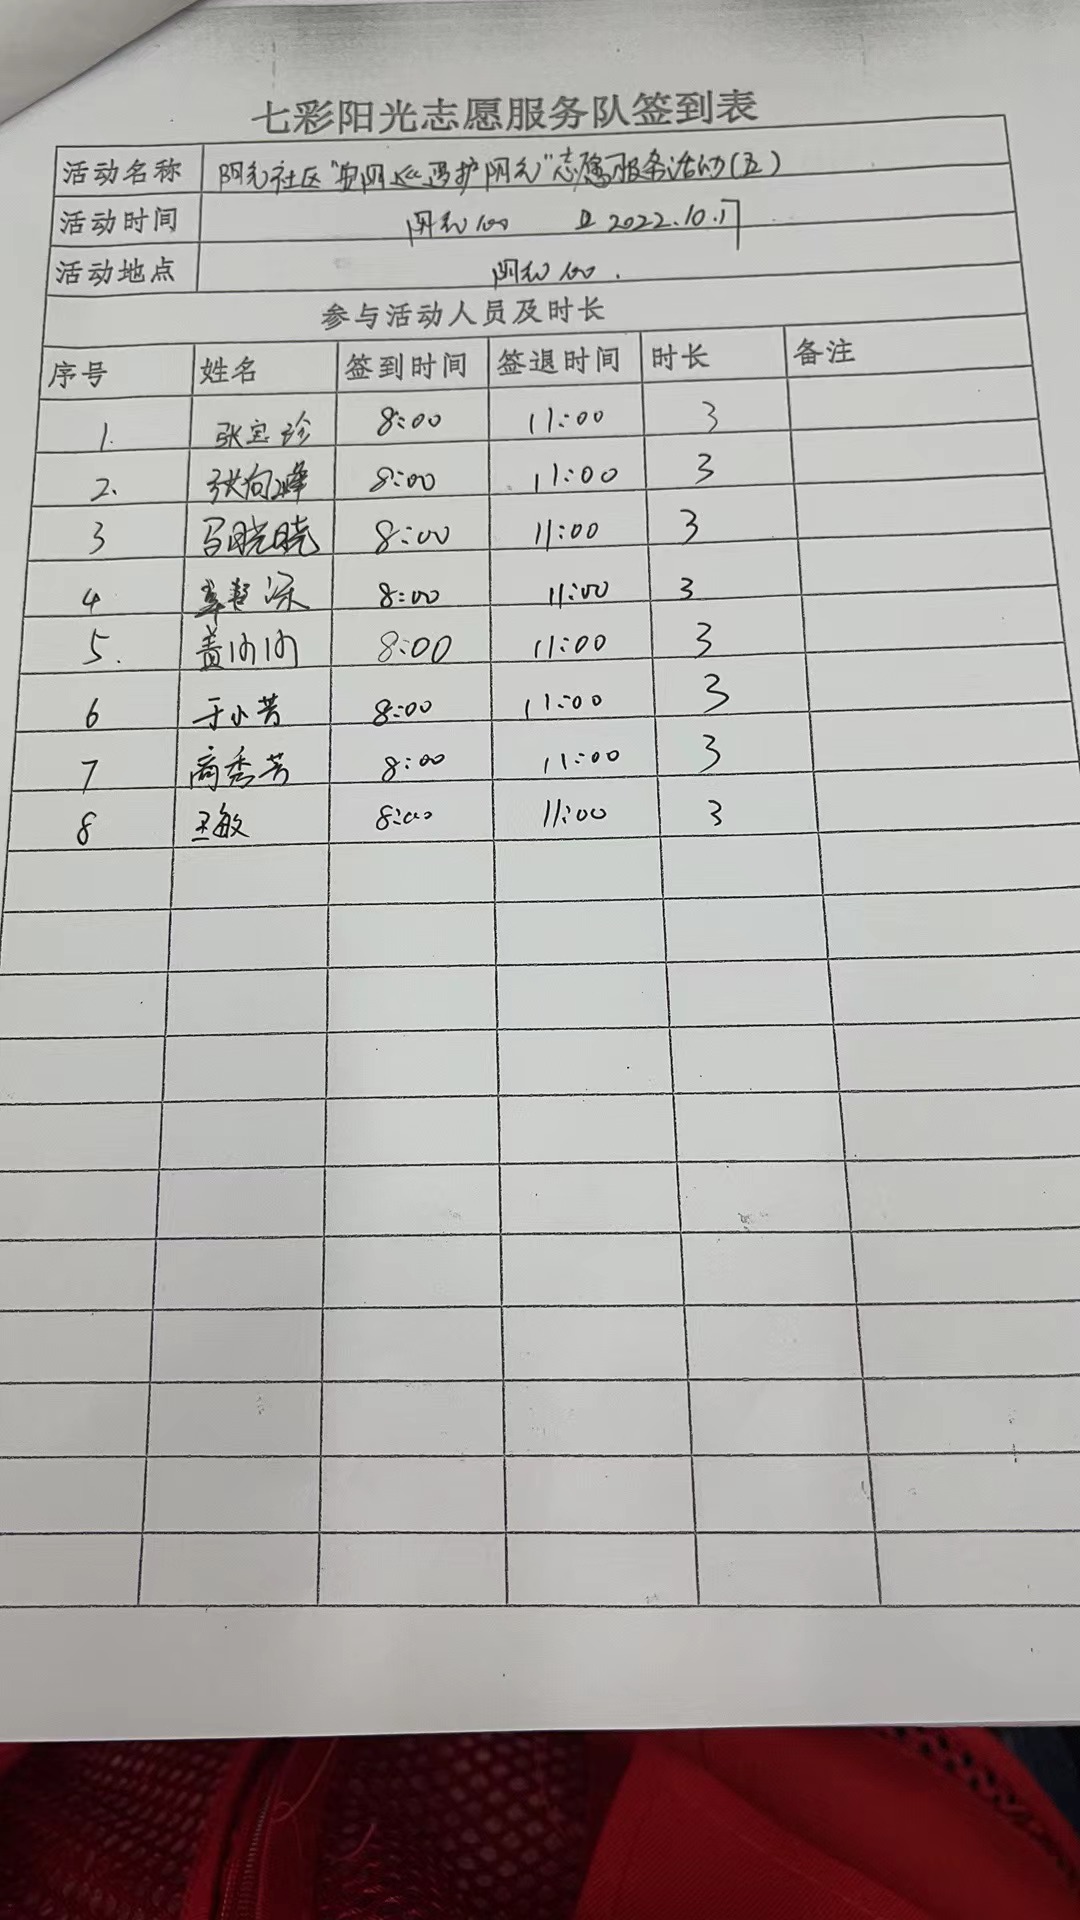 七彩阳光志愿服务队签到表
活动名称 阳光社区"安网巡逻护阳光"志愿服务活动(五)
活动时间 阳光100 2022.10.17
活动地点 阳光100.
参与活动人员及时长
序号 姓名 签到时间 签退时间 时长 备注
1. 张宝珍 8:00 11:00 3
2. 张向峰 8:00 11:00 3
3 马晓晓 8:00 11:00 3
4 8:00 11:00 3
5. 黄 8:00 11:00 3
6 于小芳 8:00 11:00 3
7 商秀芳 8:00 11:00 3
8 王敏 8:00 11:00 3